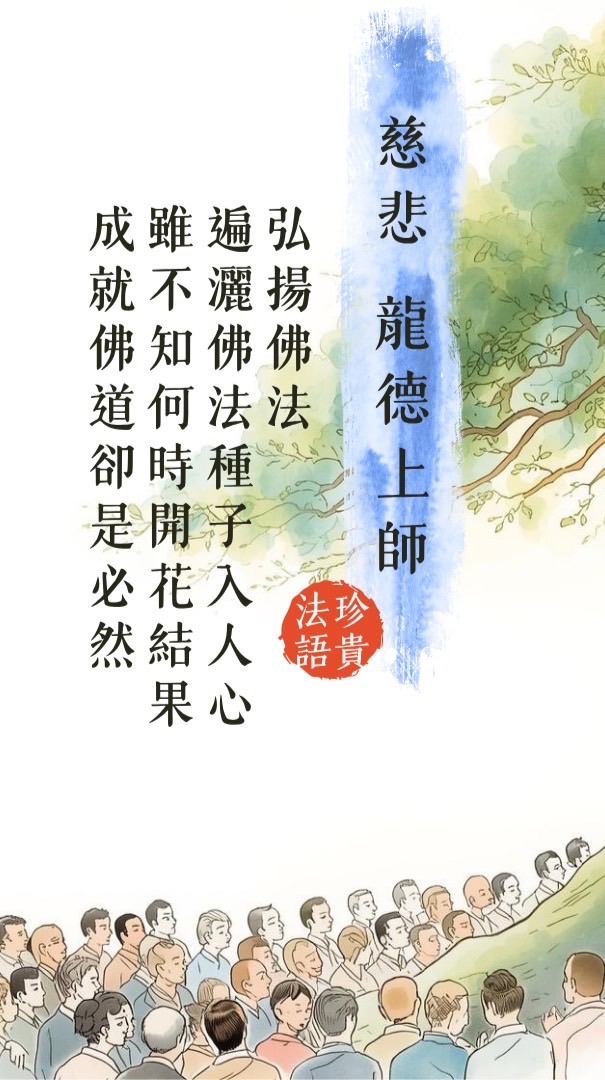 慈悲 龍德上師
珍貴
法語
弘揚佛法
遍灑佛法種子入人心
雖不知何時開花結果
成就佛道卻是必然